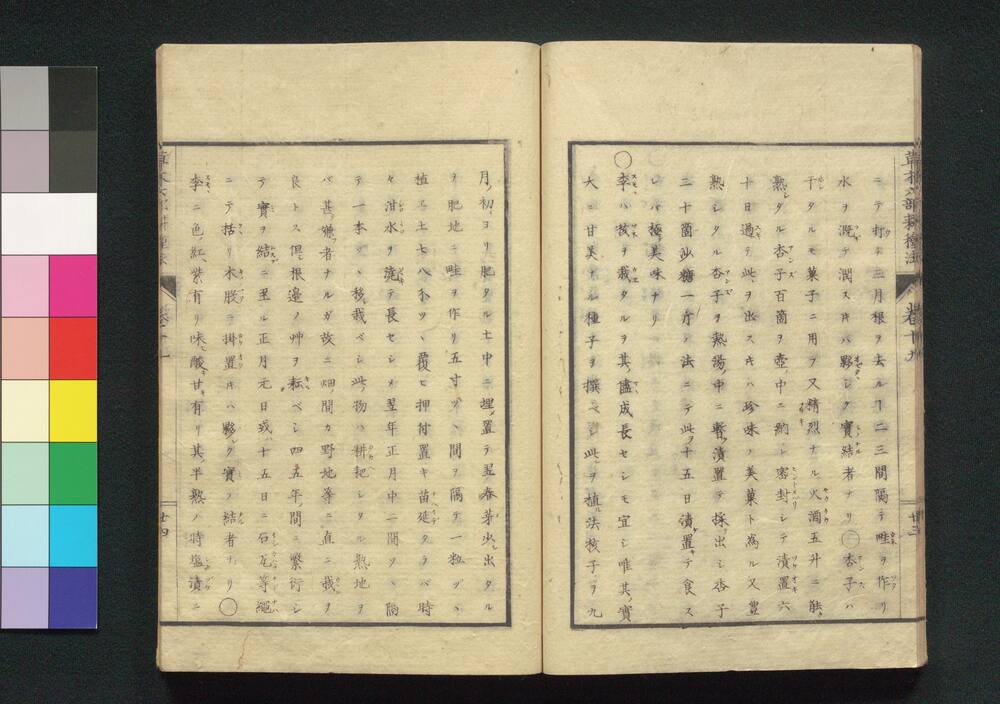 ニテ打ナ三月根ヲ去ルヿ二三間隔テ畦ヲ作リ
水ヲ漑テ潤スキハ夥シク實結者ナリ○杏子ハ
干タルモ菓子ニ用フ又精烈ナル火酒五升ニ能
熟シタル杏子百箇ヲ壺ノ中ニ納レ密封シテ漬置六
十日過テ此ヲ出スキハ珍味ノ美菓ト為ル又豊
熟シタル杏子ヲ熱湯ノ中ニ暫漬置テ採出シ杏子
二十箇沙糖一斤ノ法ニテ此ヲ十五日漬置テ食ス
レバ極テ美味ナリ
○李ハ核ヲ栽タルヲ其儘成長セシモ宜シ唯其實
大ニ甘美ナル種子ヲ撰ベシ此ヲ植ル法核子ヲ九
草木六部耕種法 巻十九 廿三
月ノ初ヨリ肥タル土中ニ埋メ置テ翌春芽少シ出タル
ヲ肥地ニ畦ヲ作リ五寸ヅヽ間ヲ隔テ一粒ヅヽ
植ヱ土七八分ツヽ覆ヒ押付置キ苗延タラバ時
々泔水ヲ澆テ長セシメ翌年正月中二間ヲヽ隔
テ一本ヅヽ移シ栽ベシ此物ハ耕耙シタル熟地ヲ
バ甚ダ嫌者ナルガ故ニ畑ノ間カ野地等ニ直ニ栽ヲ
良トス但根邊ノ艸ヲ耘ベシ四五年ノ間ニ繁衍シ
テ實ヲ結ニ至ル正月元日或ハ十五日ニ石瓦等繩
ニテ括リ木股ニ掛置キハ夥ク實ノ結者ナリ○
李ニ色ノ紅紫有リ味ニ酸甘有リ其半熟ノ時塩漬ニ
廿四